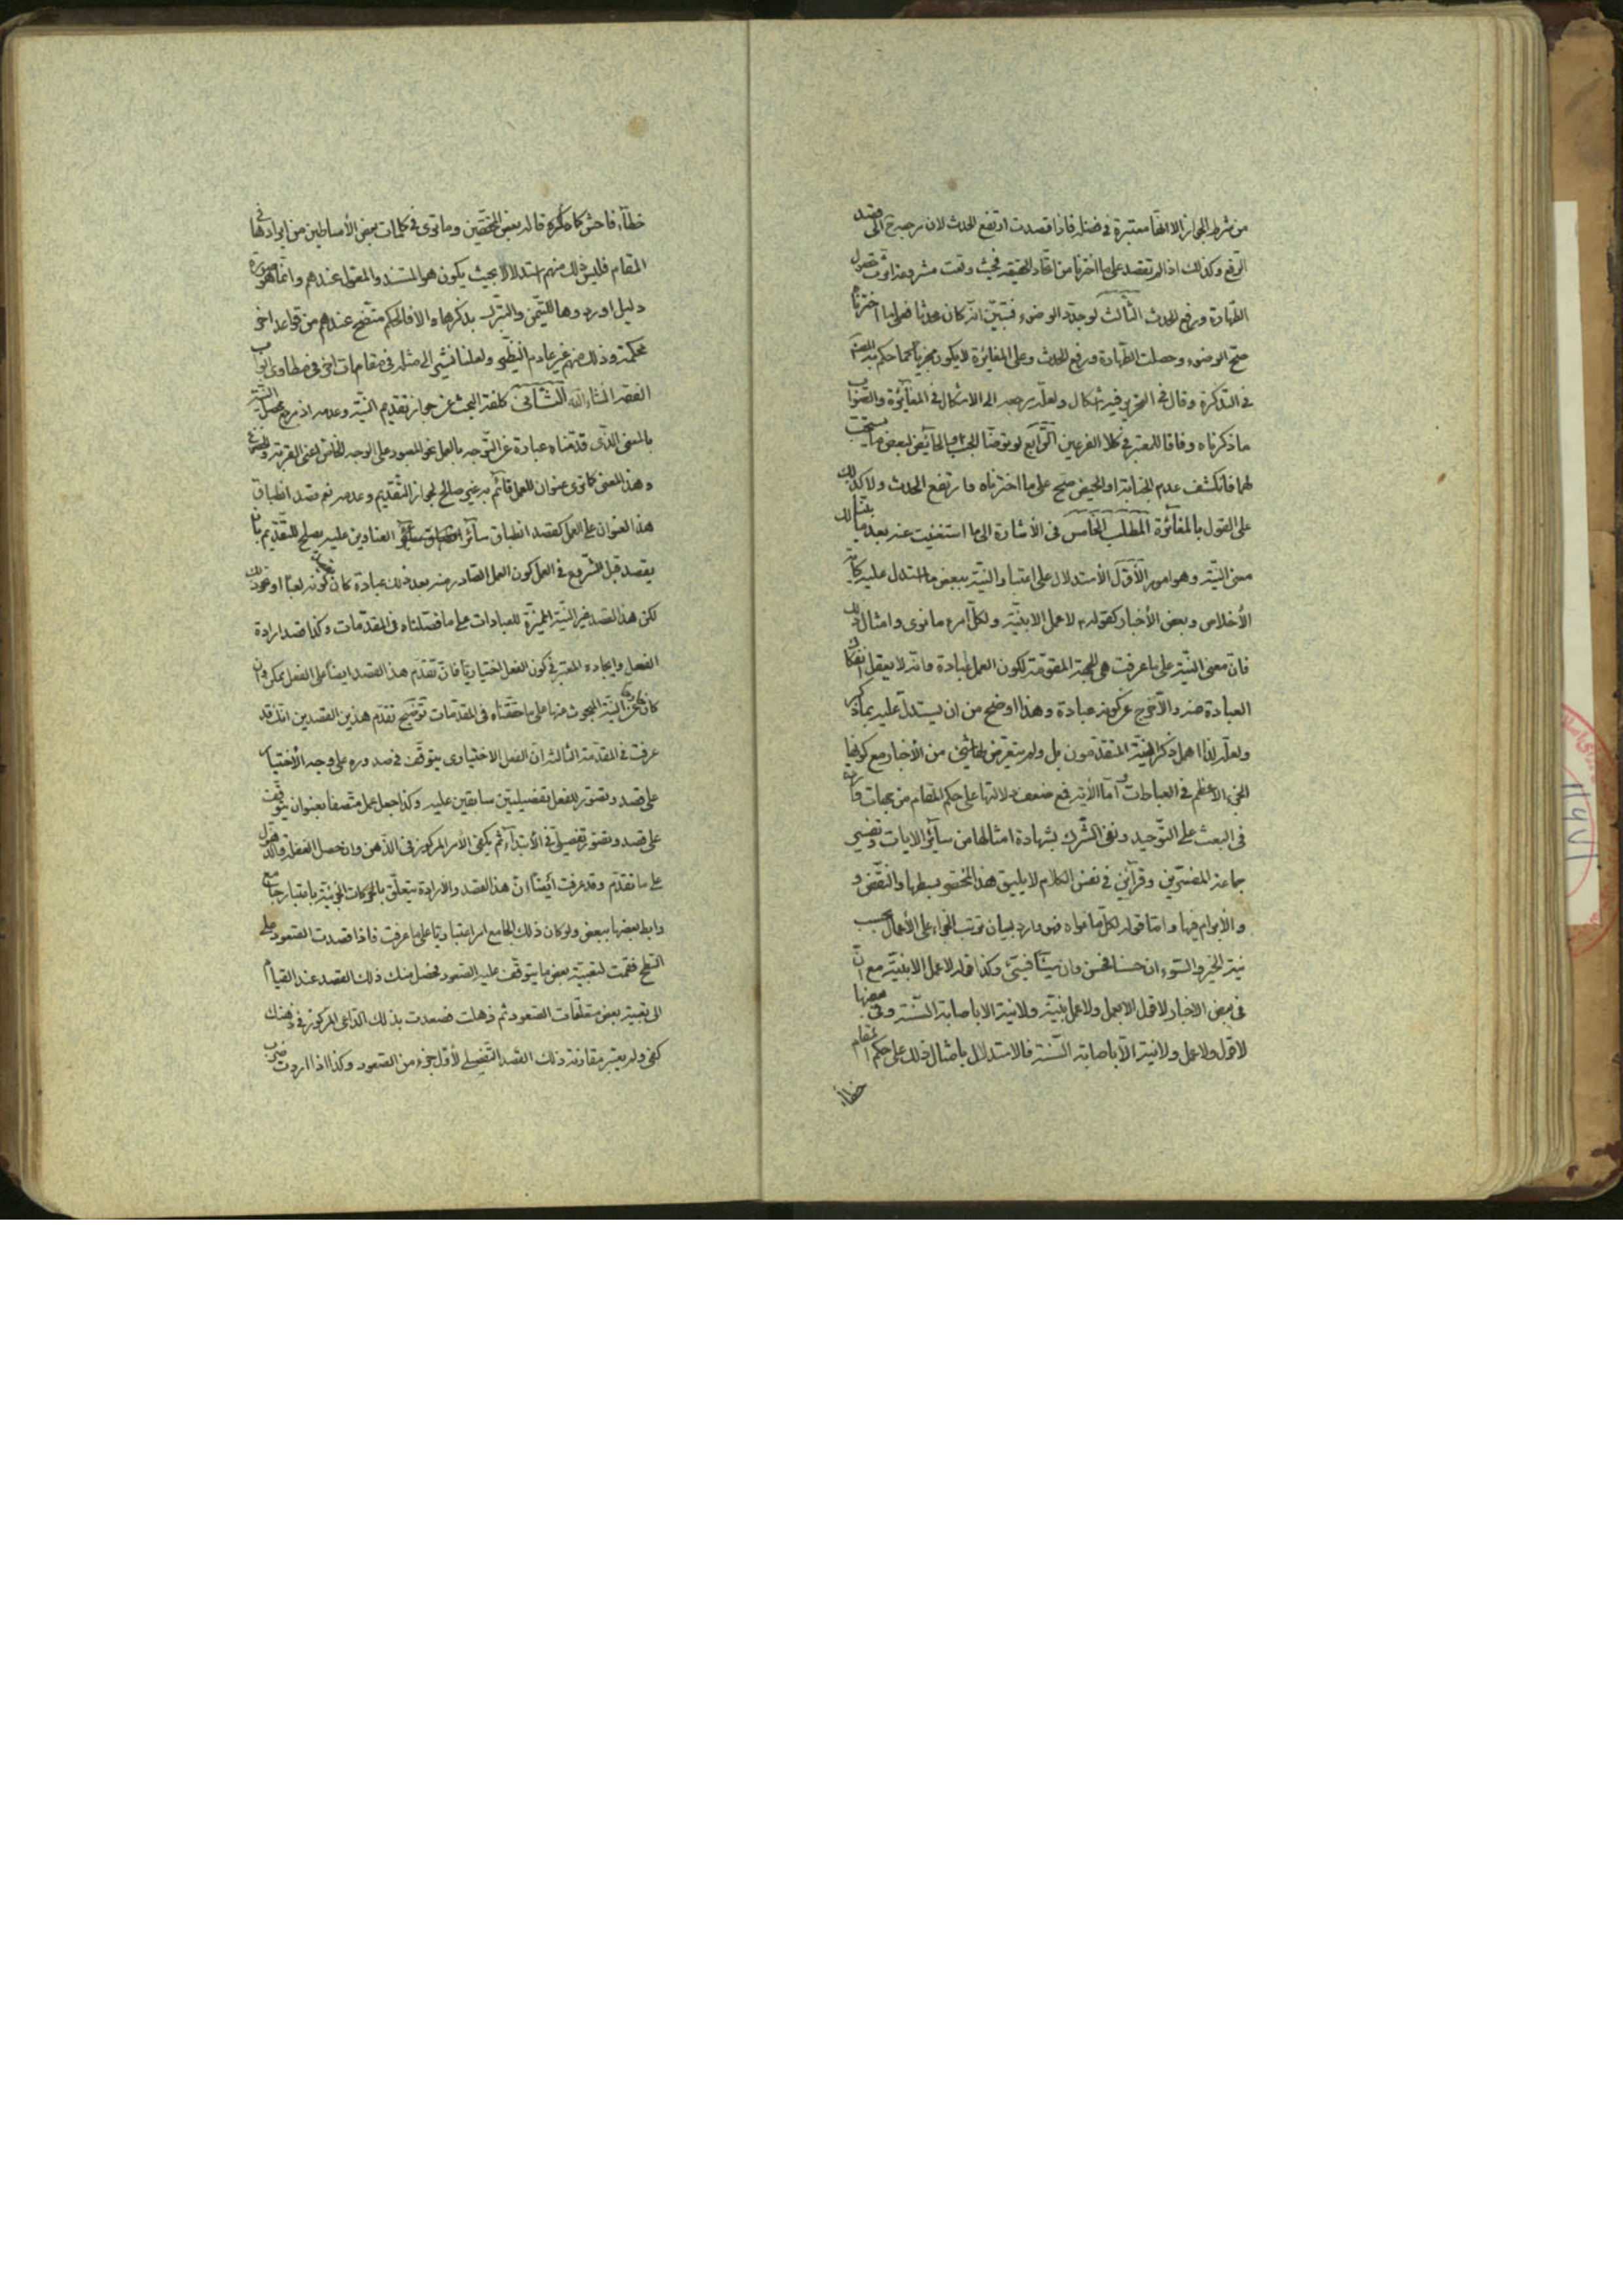 من شرط الجواز الا انها معتبرة في فضله فاذا قصدت ارتفع الحدث لان مرجع الى قصد
الرفع وكذلك اذا لم تقصد على ما اخترنا من اتحاد الحقيقة فحيث وقعت مشروعة اثرت حصول
الطهارة ورفع الحدث الثالث لو جدد الوضوء فتبين انه كان محدثا فعلى ما اخترنا
صح الوضوء وحصلت الطهارة ورفع الحدث وعلى المغائرة لا يكون مجزيا كما حكم به
في التذكرة وقال في التحرير فيه اشكال ولعله يرجع الى الاشكال في المغائرة والصواب
ما ذكرناه وفاقا للمعتبر في كلا الفرعين الرابع لو توضأ الجنب والحائض لبعض ما يستحب
لهما فانكشف عدم الجنابة او الحيض صح على ما اخترناه وارتفع الحدث ولا كذلك
على القول بالمغائرة المطلب الخامس في الأشارة الى ما استغنيت عنه بعد ما بينا لك
معنى النية وهو امور الأول الأستدلال على اعتبار النية ببعض ما استدل عليه كآية
الأخلاص وبعض الأخبار كقوله لا عمل الا بنية ولكل امرء ما نوى وامثال ذلك
فان معنى النية على ما عرفت هي الجهة المقومة لكون العمل عبادة وانه لا يعقل انفكاك
العبادة عنه والا لخرج عن كونه عبادة وهذا اوضح من ان يستدل عليه بما ذكر
ولعله لذا اهمل ذكر النية المتقدمون بل ولم يتعرض لها شيخ من الأخبار مع كونها
الجزء الأعظم في العبادات اما الأية فمع ضعف دلالتها على حكم المقام من جهات
في البعث على التوحيد ونفي الشرك بشهادة امثالها من سائر الايات وتفسير
جماعة المفسرين وقرآئن في نفس الكلام لا يليق هذا المختصر بسطها والنقض و
والأبرام فيها واما قوله لكل ما نواه فهو وارد لبيان ترتب الجزاء على الأعمال بحسب
نية الخير والسوء ان حسنا فحسن وان سيئا فسيئ وكذا قوله لا عمل الا بنية مع ان
في بعض الاخبار لا قول الا بعمل ولا عمل بنية ولا نية الا باصابة السنة وفي بعضها
لا قول ولا عمل ولا نية الا باصابة السنة فالاستدلال بامثال ذلك على حكم المقام
خطأ
خطأ فاحش كما ذكره قاله بعض المحققين وما ترى في كلمات بعض الأساطين من ايرادها في
المقام فليس ذلك منهم استدلالا بحيث يكون هو المستند والمعول عندهم وانما هو صورة
دليل اوردوها للتيمن والتبرك بذكرها والا فالحكم متضح عندهم من قواعد اخر
محكمة وذلك منهم غير عادم النظير ولعلنا نشير الى مثله في مقامات اخر في مطاوي ابواب
الفقه انشاء الله الثاني كلفة البحث عن جواز تقديم النية وعدمه اذ مرجع محصل النية
بالمعنى الذي قدمناه عبارة عن التوجه بالعمل نحو المعبود على الوجه الخاص اعني القربة
وهذا المعنى كما ترى عنوان للعمل قائم به غير صالح لجواز التقديم وعدمه نعم قصد انطباق
هذا العنوان على العمل كقصد انطباق سائر العناوين عليه يصلح للتقديم بأن
يقصد قبل الشروع في العمل كون العمل الصادر منه بعد ذلك عبادة كما كونه لعبا او نحو ذلك
لكن هذا القصد غير النية المميزة للعبادات على ما فصلناه في المقدمات وكذا قصد ارادة
الفعل وايجاده المعتبر في كون الفعل اختياريا فان تقدم هذا القصد ايضا على الفعل يمكن وان
كان غير النية المبحوث عنها على ما حققناه في المقدمات توضيح تقدم هذين القصدين انك قد
عرفت في المقدمة الثالثة ان الفعل الاختياري يتوقف في صدوره على وجه الأختيار
على قصد وتصور للفعل تفصيليين سابقين عليه وكذا جعل عمل متصفا بعنوان يتوقف
على قصد وتصور تفصيلي في الأبتداء ثم يكفي الأمر المركوز في الذهن وان حصل الغفلة والذهول
على ما تقدم وقد عرفت أيضا ان هذا القصد والارادة يتعلق بالحركات الجزئية باعتبار جامع
رابط بعضها ببعض ولو كان ذلك الجامع امرا اعتباريا على ما عرفت فاذا قصدت الصعود على
السطح فقمت لتهيئة بعض ما يتوقف عليه الصعود فحصل منك ذلك القصد عند القيام
الى تهيئة بعض متعلقات الصعود ثم ذهلت فصعدت بذلك الداعي المركوز في ذهنك
كفى ولم يعتبر مقارنة ذلك القصد التفصيلي لأول جزء من الصعود وكذا اذا اردت ضرب